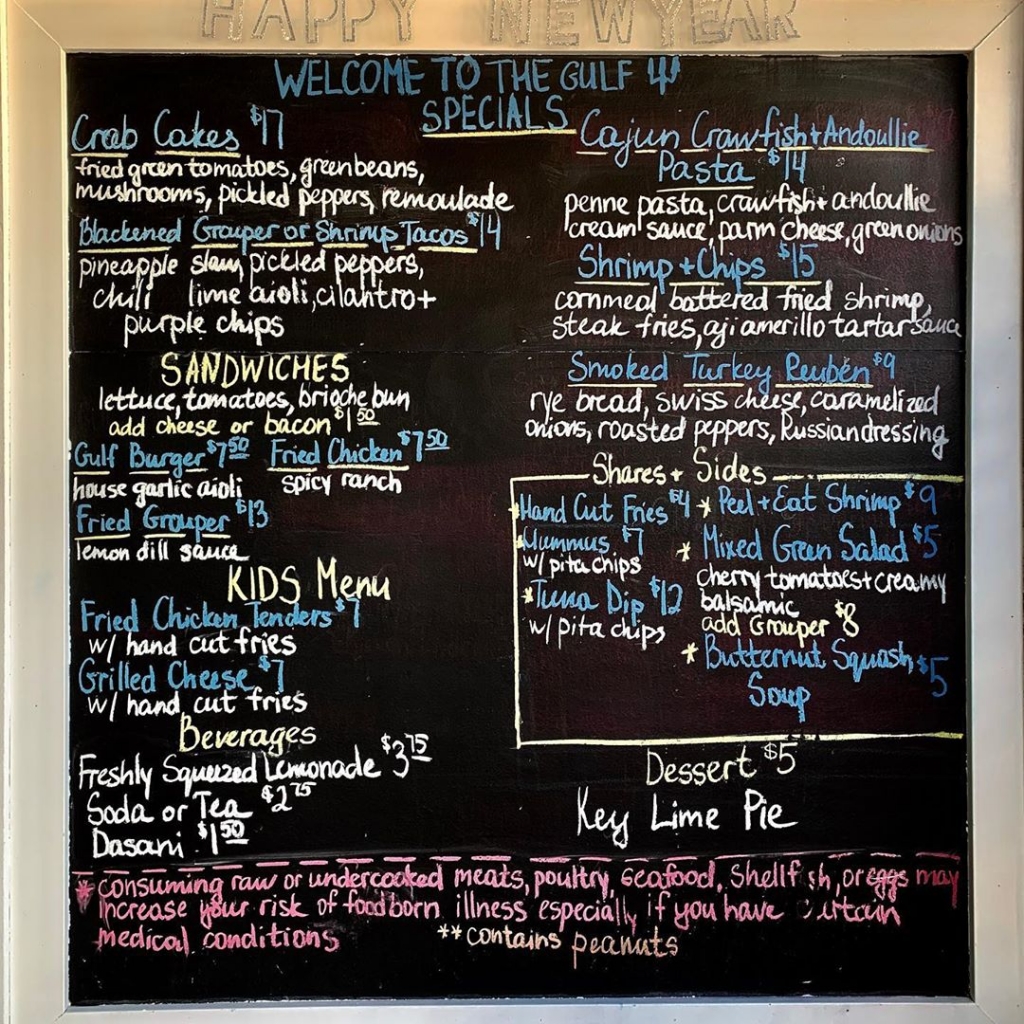 HAPPY NEW YEAR
WELCOME TO THE GULF
SPECIALS
Crab Cakes $17
fried green tomatoes, greenbeans,
mushrooms, pickled peppers, remoulade
Blackened Grouper or Shrimp Tacos $14
pineapple slaw, pickled peppers,
chili lime aioli, cilantro +
purple chips
SANDWICHES
lettuce, tomatoes, brioche bun
add cheese or bacon $1.50
Gulf Burger $7.50 Fried Chicken $7.50
house garlic aioli spicy ranch
Fried Grouper $13
lemon dill sauce
KIDS Menu
Fried Chicken Tenders $7
w/ hand cut fries
Grilled Cheese $7
w/ hand cut fries
Beverages
Freshly Squeezed Lemonade $3.75
Soda or Tea $2.75
Dasani $1.50
Cajun Crawfish + Andoullie
Pasta $14
penne pasta, crawfish + andoullie
cream sauce, parm cheese, green onions
Shrimp + Chips $15
cornmeal battered fried shrimp,
steak fries, aji amerillo tartar sauce
Smoked Turkey Reuben $9
rye bread, swiss cheese, caramelized
onions, roasted peppers, Russian dressing
Shares + Sides
*Hand Cut Fries $4
*Hummus $7
w/ pita chips
*Tuna Dip $12
w/ pita chips
* Peel + Eat Shrimp $9
* Mixed Green Salad $5
cherry tomatoes + creamy
balsamic
add Grouper $8
* Butternut Squash $5
Soup
Dessert $5
Key Lime Pie
* consuming raw or undercooked meats, poultry, seafood, Shellfish, or eggs may
increase your risk of foodborn illness especially if you have certain
medical conditions **contains peanuts